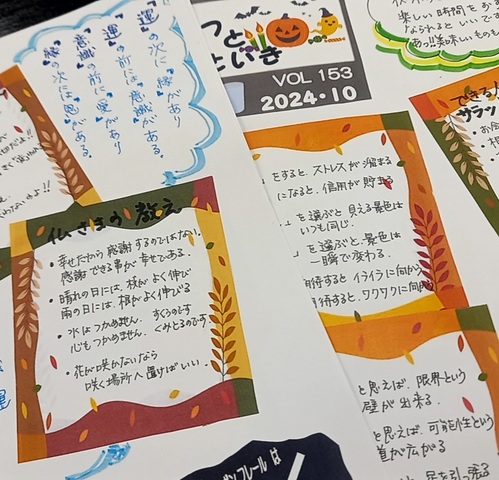 『運』の次に『縁』があり
『運』の前に『意識』がある。
『意識』の前に『恩』があり
『縁』の次に『恩』がある。
っと
といき
VOL 153
2024・10
楽しい時間をお
なられると いいで
あっ!!美味しいもの
仏さまの教え
・幸せだから 感謝するのではない。
感謝できる事が 幸せである。
・晴れの日には、枝が よく伸び
雨の日には、根が よく伸びる
・水はつかめません。すくうのです
心もつかめません。くみとるのです
・花が咲かないなら
咲く場所へ置けばいい。
をすると、ストレスが溜まる
になると、信用が貯まる
を選ぶと 見える景色は
いつも同じ。
を選ぶと、景色は
一瞬で変わる。
期待すると イライラに向かう
期待すると、ワクワクに向かう
できる人
サラッ
・お会
と思えば、限界という
壁が出来る。
と思えば、可能性という
道が広がる
足を引っ張る
フレールは